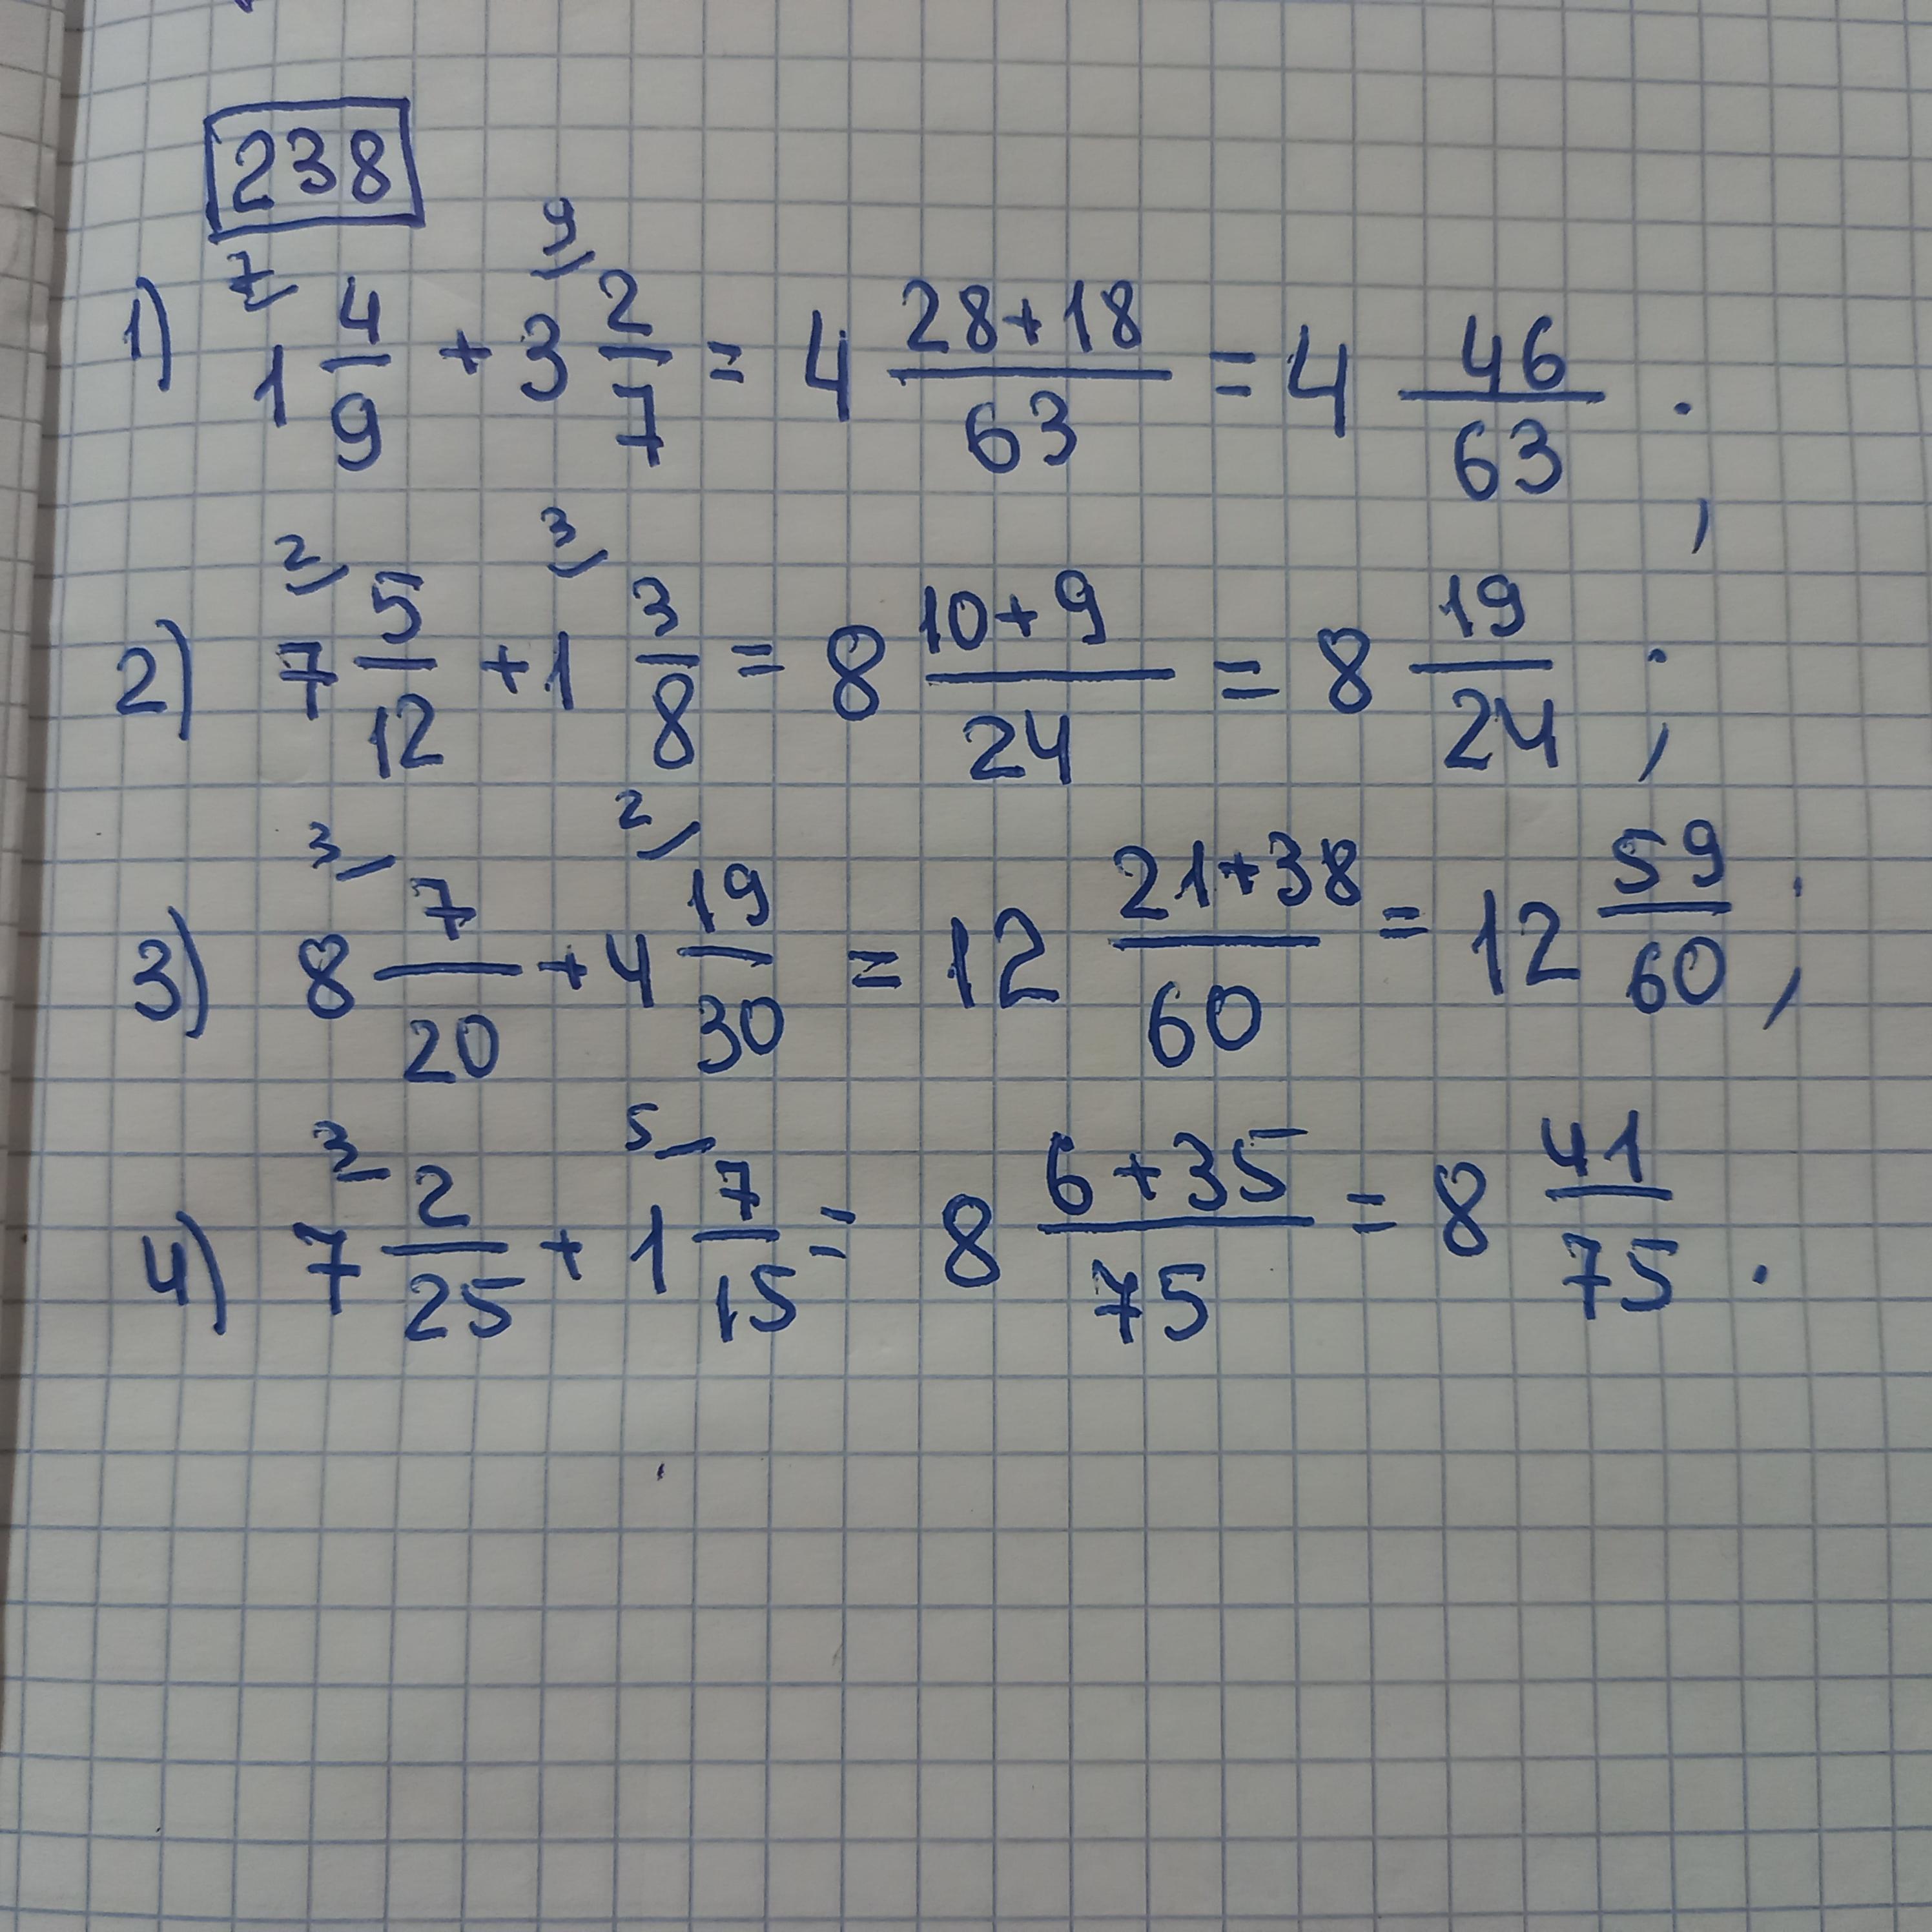 238
1) ⁷⁄1 4/9 + ⁹⁄3 2/7 = 4 (28+18)/63 = 4 46/63 ;
2) ²⁄7 5/12 + ³⁄1 3/8 = 8 (10+9)/24 = 8 19/24 ;
3) ³⁄8 7/20 + ²⁄4 19/30 = 12 (21+38)/60 = 12 59/60 ;
4) ³⁄7 2/25 + ⁵⁄1 7/15 = 8 (6+35)/75 = 8 41/75 .